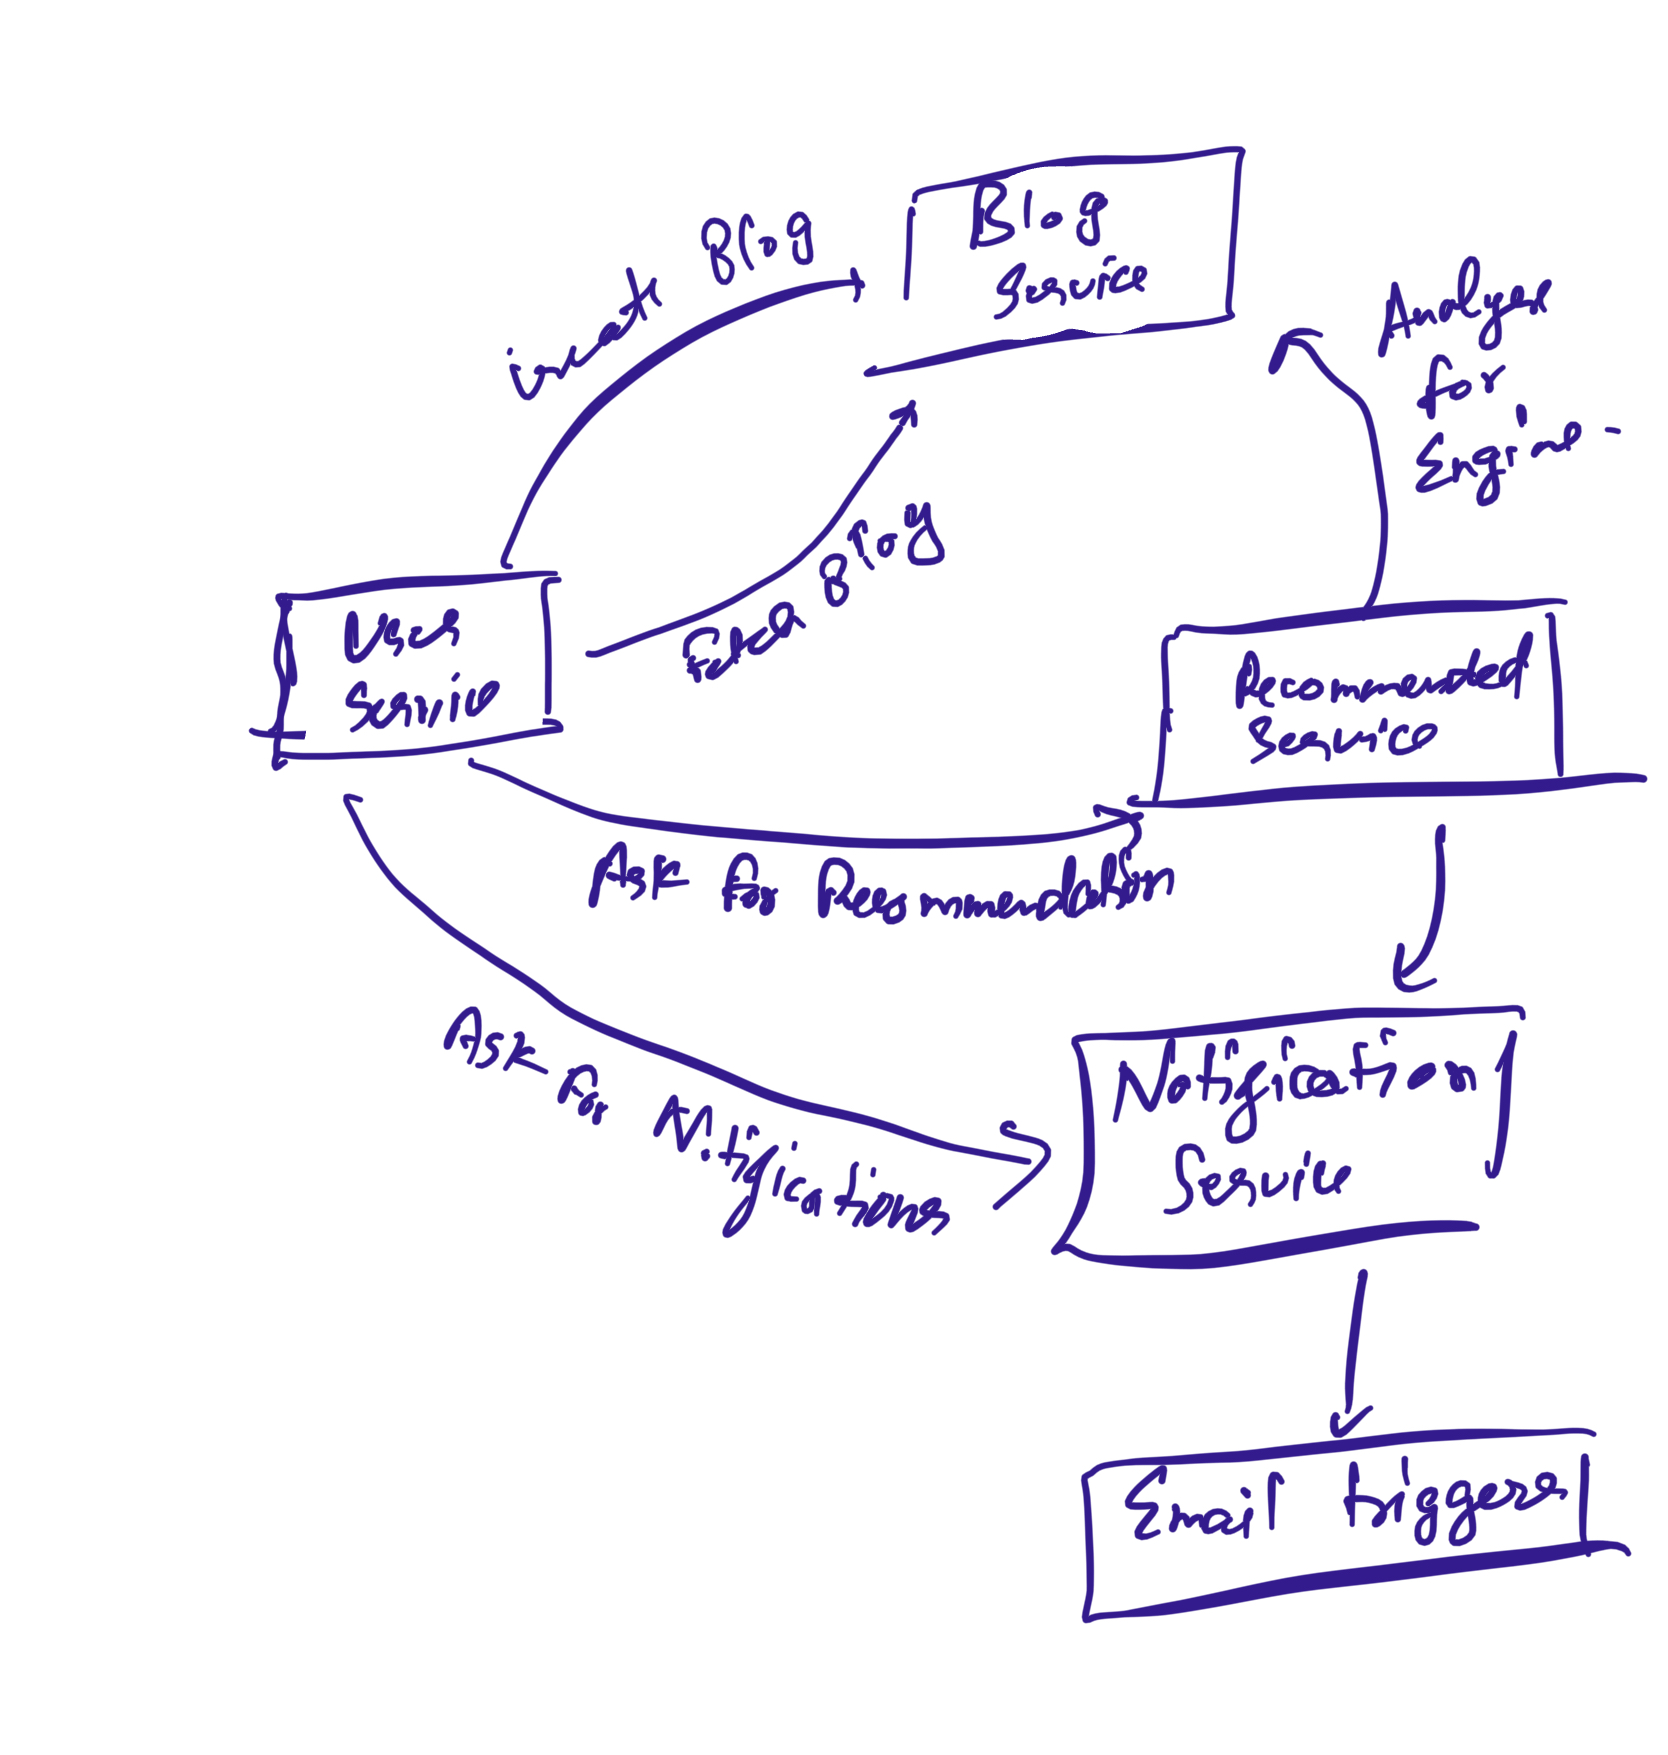 Blog
Service
Blog
Analyse
for
Engine -
Fetch Blog
User
Service
Recommended
Service
Ask for Recommendation
Ask for Notifications
Notification
Service
Email triggers